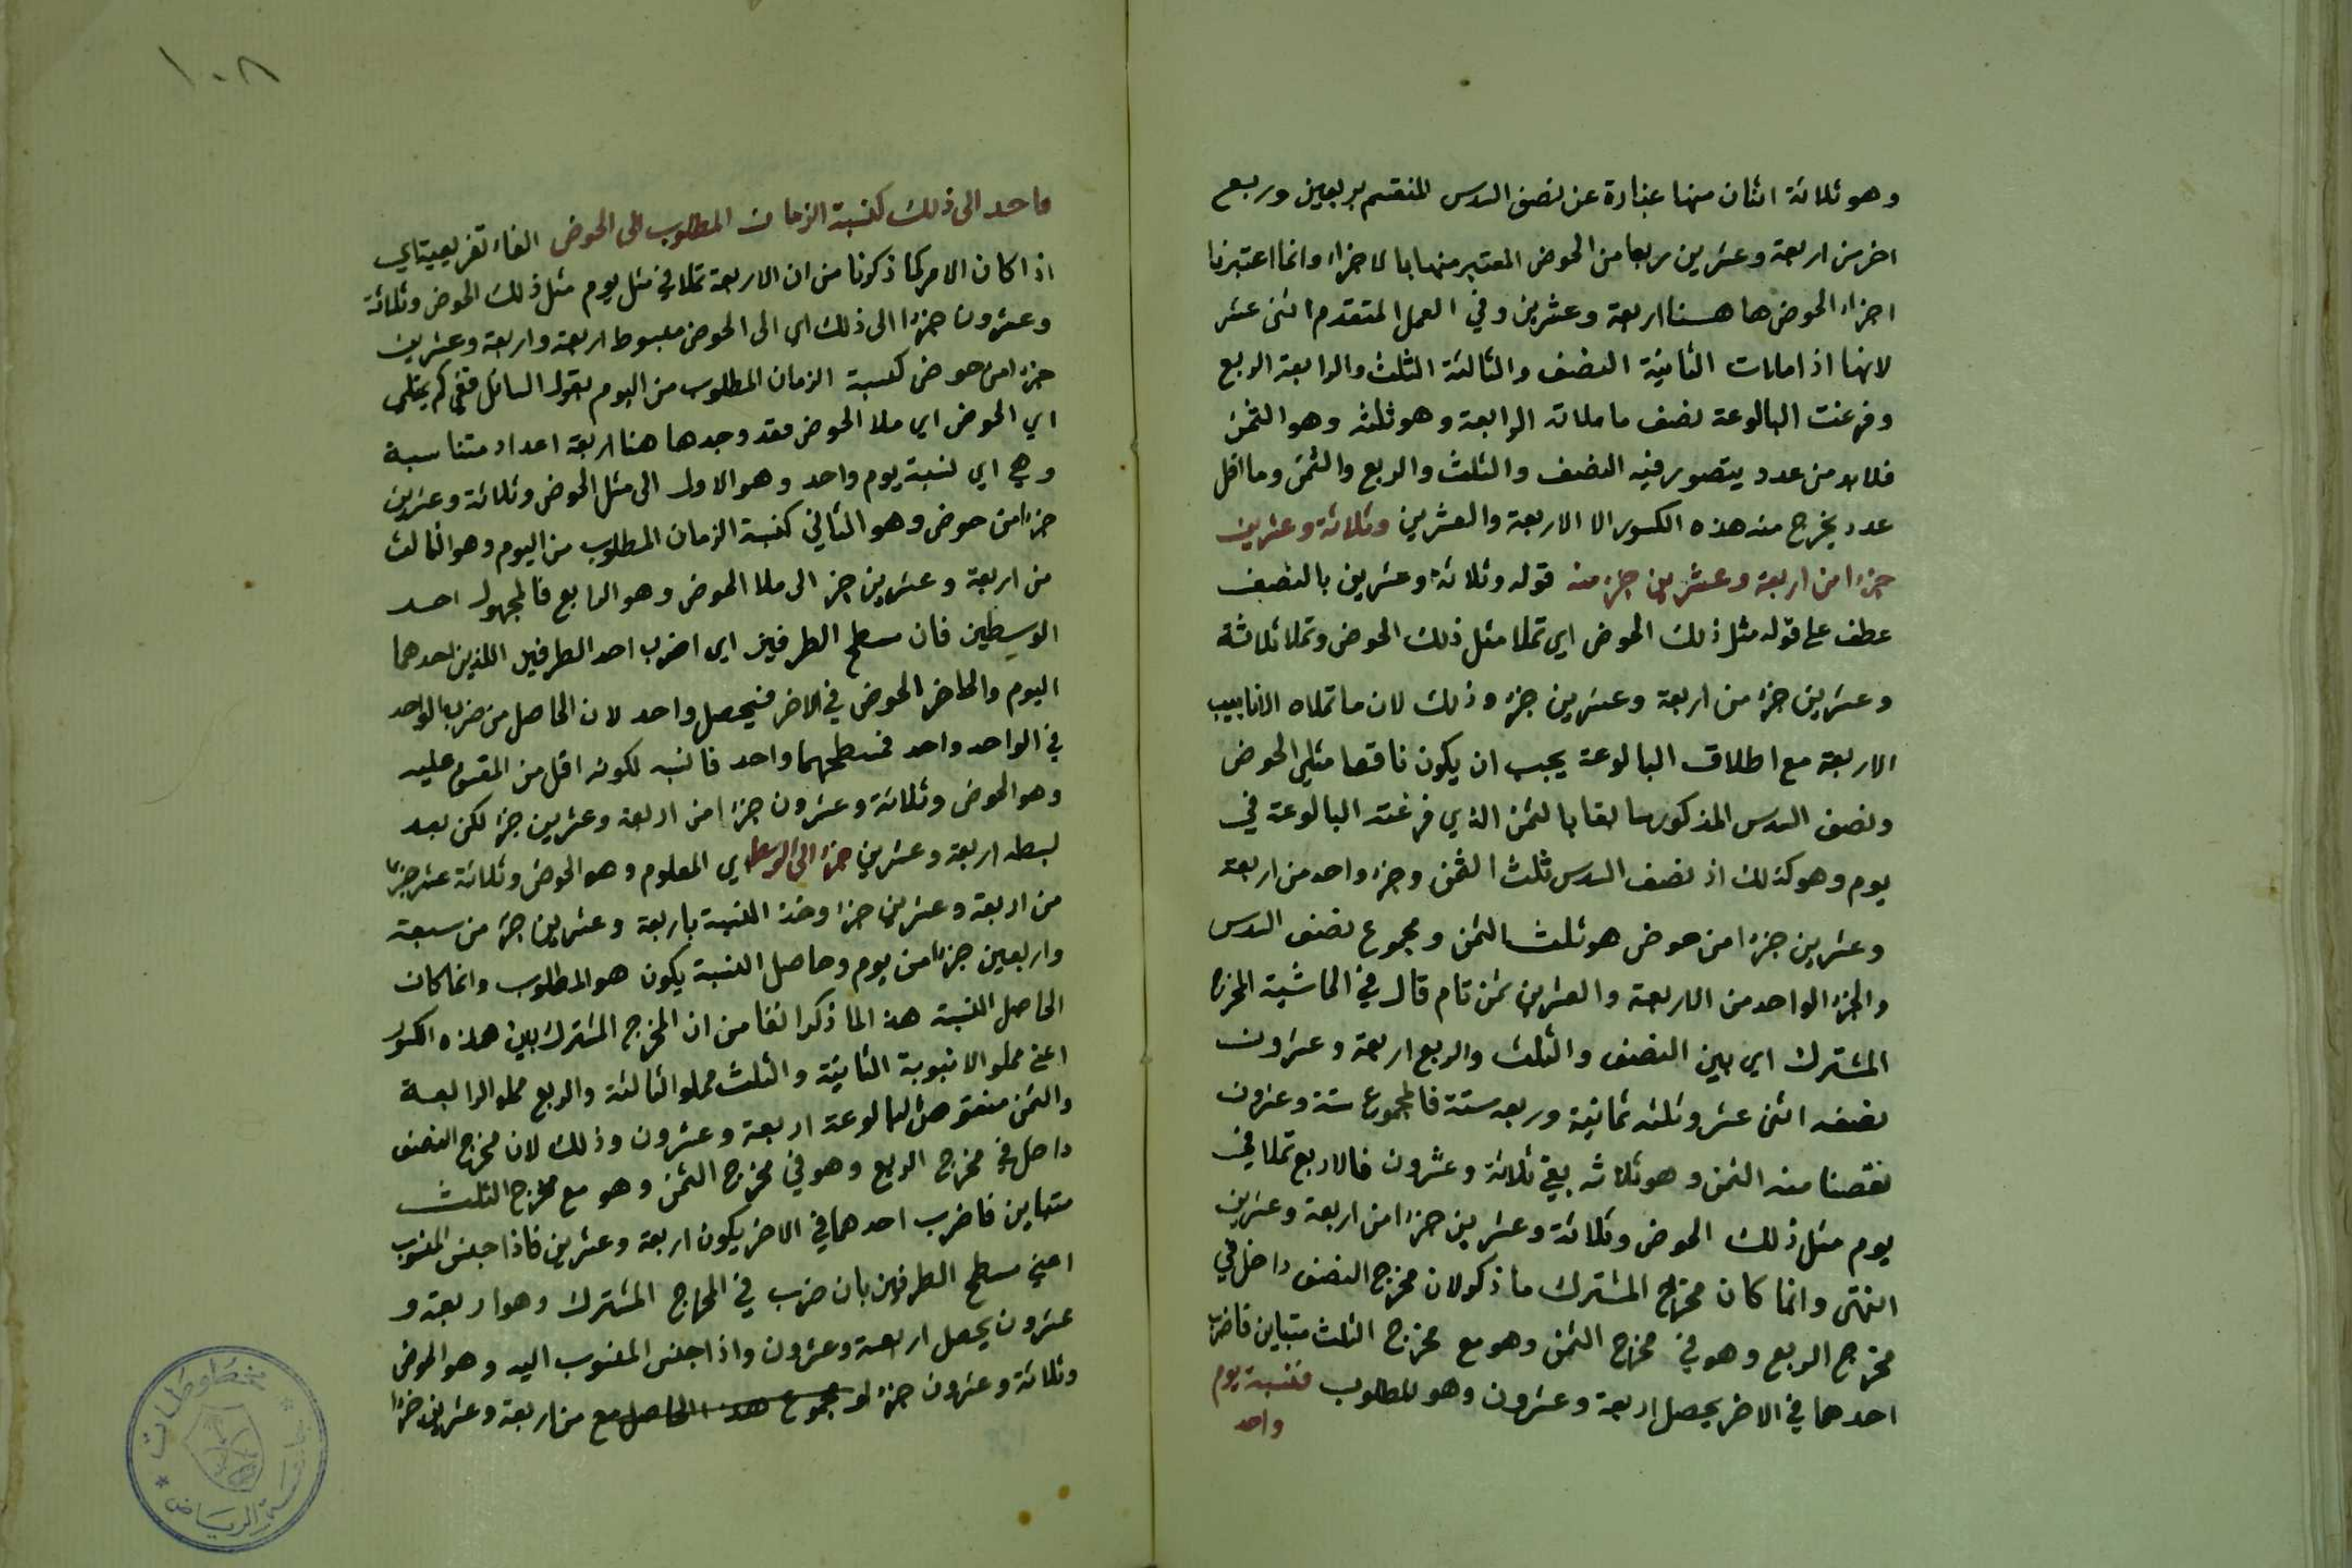 وهو ثلاثة اثنان منها عبارة عن نصف السدس المنقسم بربعين وربع
اخر من اربعة وعشرين ربعا من الحوض المعتبر منها بالاجزاء وانما اعتبرنا
اجزاء الحوض هاهنا اربعة وعشرين وفي العمل المتقدم اثنى عشر
لانها اذا ملات الثانية النصف والثالثة الثلث والرابعة الربع
وفرغت البالوعة نصف ما ملاته الرابعة وهو ثلثه وهو الثمن
فلابد من عدد يتصور فيه النصف والثلث والربع والثمن وما اقل
عدد يخرج منه هذه الكسور الا الاربعة والعشرين وثلاثة وعشرين
جزءا من اربعة وعشرين جزء منه قوله وثلاثة وعشرين بالنصب
عطف على قوله مثل ذلك الحوض اي تملا مثل ذلك الحوض وتملا ثلاثة
وعشرين جزء من اربعة وعشرين جزء وذلك لان ما تملاه الانابيب
الاربعة مع اطلاق البالوعة يجب ان يكون ناقصا مثلي الحوض
ونصف السدس المذكور سابقا بالثمن الذي فرغته البالوعة في
يوم وهو كذلك اذ نصف السدس ثلث الثمن وجزء واحد من اربعة
وعشرين جزءا من حوض هو ثلث الثمن ومجموع نصف السدس
والجزء الواحد من الاربعة والعشرين ثمن تام قال في الحاشية المخرج
المشترك اي بين النصف والثلث والربع اربعة وعشرون
نصفه اثنى عشر وثلثه ثمانية وربعه ستة فالمجموع ستة وعشرون
نقصنا منه الثمن وهو ثلاثه بقي ثلاثة وعشرون فالاربع تملا في
يوم مثل ذلك الحوض وثلاثة وعشرين جزءا من اربعة وعشرين
انتهى وانما كان مخرج المشترك ما ذكر لان مخرج النصف داخل في
مخرج الربع وهو في مخرج الثمن وهو مع مخرج الثلث متباين فاضرب
احدهما في الاخر يحصل اربعة وعشرون وهو المطلوب فنسبة يوم
واحد
١٠٨
واحد الى ذلك كنسبة الزمان المطلوب الى الحوض الفاء تفريعية اي
اذا كان الامر كما ذكرنا من ان الاربعة تملا في مثل يوم مثل ذلك الحوض وثلاثة
وعشرون جزءا الى ذلك اي الى الحوض مبسوط اربعة واربعة وعشرين
جزءا من حوض كنسبة الزمان المطلوب من اليوم بقول السائل ففي كم يمتلي
اي الحوض اي ملا الحوض فقد وجدها هنا اربعة اعداد متناسبة
وهي اي نسبة يوم واحد وهو الاول الى مثل الحوض وثلاثة وعشرين
جزءا من حوض وهو الثاني كنسبة الزمان المطلوب من اليوم وهو الثالث
من اربعة وعشرين جزء الى ملا الحوض وهو الرابع فالمجهول احد
الوسطين فان مسطح الطرفين اي اضرب احد الطرفين اللذين احدهما
اليوم والحاضر الحوض في الاخر فيحصل واحد لان الحاصل من ضرب الواحد
في الواحد واحد فمسطحهما واحد فانسبه لكونه اقل من المقسوم عليه
وهو الحوض وثلاثة وعشرون جزءا من اربعة وعشرين جزء لكن بعد
بسطه اربعة وعشرين جزءا الى الوسط اي المعلوم وهو الحوض وثلاثة عشر جزءا
من اربعة وعشرين جزءا وخذ النسبة باربعة وعشرين جزء من سبعة
واربعين جزءا من يوم وحاصل النسبة يكون هو المطلوب وانما كان
الحاصل النسبة هذا لما ذكر انفا من ان المخرج المشترك بين هذه الكسور
اعني مملو الانبوبة الثانية والثلث مملو الثالثة والربع مملو الرابعة
والثمن منقوص البالوعة اربعة وعشرون وذلك لان مخرج النصف
داخل في مخرج الربع وهو في مخرج الثمن وهو مع مخرج الثلث
متباين فاضرب احدهما في الاخر يكون اربعة وعشرين فاذا جنس المنسوب
اعني مسطح الطرفين بان ضرب في المخرج المشترك وهو اربعة و
عشرون يحصل اربعة وعشرون واذا جنس المنسوب اليه وهو الحوض
وثلاثة وعشرون جزء لو مجموع هذا الحاصل مع من اربعة وعشرين جزءا
مخطوطات
الرياض